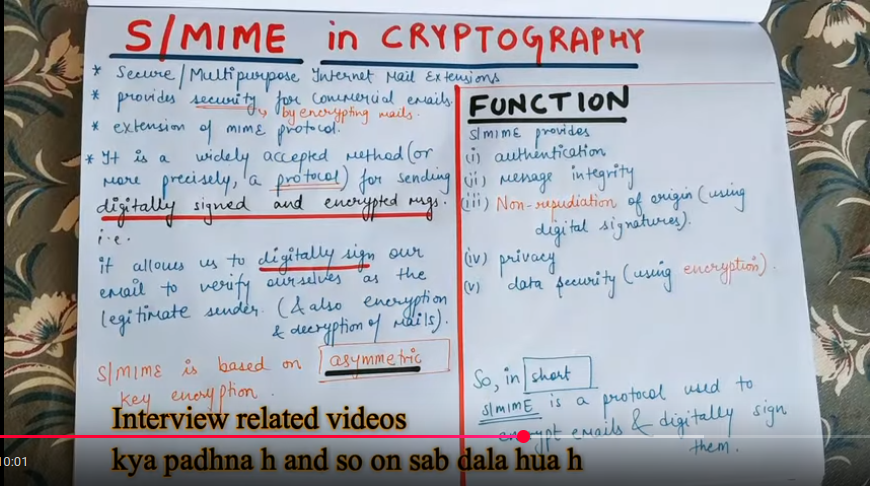 S/MIME in CRYPTOGRAPHY
* Secure/Multipurpose Internet Mail Extensions
* provides security for commercial emails
↳ by encrypting mails.
* extension of MIME protocol.
* It is a widely accepted method (or
more precisely, a protocol) for sending
digitally signed and encrypted msgs.
i.e.
it allows us to digitally sign our
email to verify ourselves as the
legitimate sender. (& also encryption
& decryption of mails).
S/MIME is based on asymmetric
key encryption.
FUNCTION
S/MIME provides
(i) authentication
(ii) message integrity
(iii) Non-repudiation of origin (using
digital signatures).
(iv) privacy
(v) data security (using encryption).
So, in short
S/MIME is a protocol used to
encrypt emails & digitally sign
them.
Interview related videos
kya padhna h and so on sab dala hua h
10:01